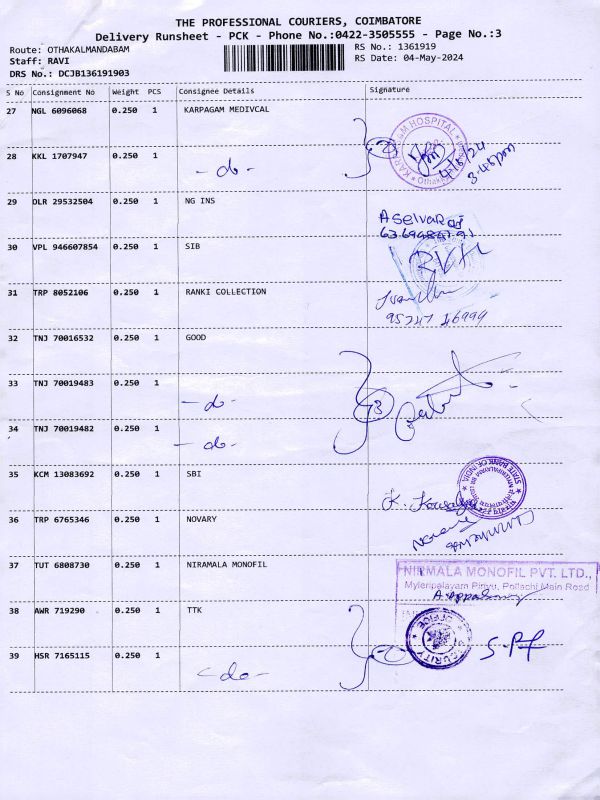 THE PROFESSIONAL COURIERS, COIMBATORE
Delivery Runsheet - PCK - Phone No.:0422-3505555 - Page No.:3
Route: OTHAKALMANDABAM
RS No.: 1361919
Staff: RAVI
RS Date: 04-May-2024
DRS No.: DCJB136191903
S No Consignment No Weight PCS Consignee Details Signature
27 NGL 6096068 0.250 1 KARPAGAM MEDIVCAL
28 KKL 1707947 0.250 1 - do -
KARPAGAM HOSPITAL
4/5/24
3.45pm
29 DLR 29532504 0.250 1 NG INS
ASelvaRaj
30 VPL 946607854 0.250 1 SIB
31 TRP 8052106 0.250 1 RANKI COLLECTION
32 TNJ 70016532 0.250 1 GOOD
33 TNJ 70019483 0.250 1 - do -
3
34 TNJ 70019482 0.250 1 - do -
35 KCM 13083692 0.250 1 SBI
STATE BANK OF INDIA
K. Kowsalya
36 TRP 6765346 0.250 1 NOVARY
37 TUT 6808730 0.250 1 NIRAMALA MONOFIL
NIRMALA MONOFIL PVT. LTD.,
Myleripalayam Pirivu, Pollachi Main Road
38 AWR 719290 0.250 1 TTK
SECURITY OFFICE
39 HSR 7165115 0.250 1 - do -